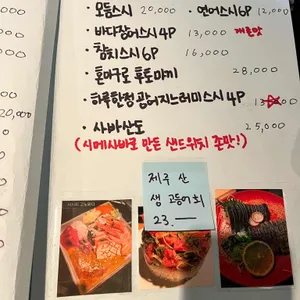 · 모듬스시 20,000 · 연어스시 6P 12,000
· 바다장어스시 4P 13,000 개존맛
· 참치스시 6P 16,000
· 혼마구로 후토마끼 28,000
· 하루한정 광어지느러미스시 4P
· 사바산도 25,000
(시메사바로 만든 샌드위치 존맛!)
제주산
생 고등어회
23.—